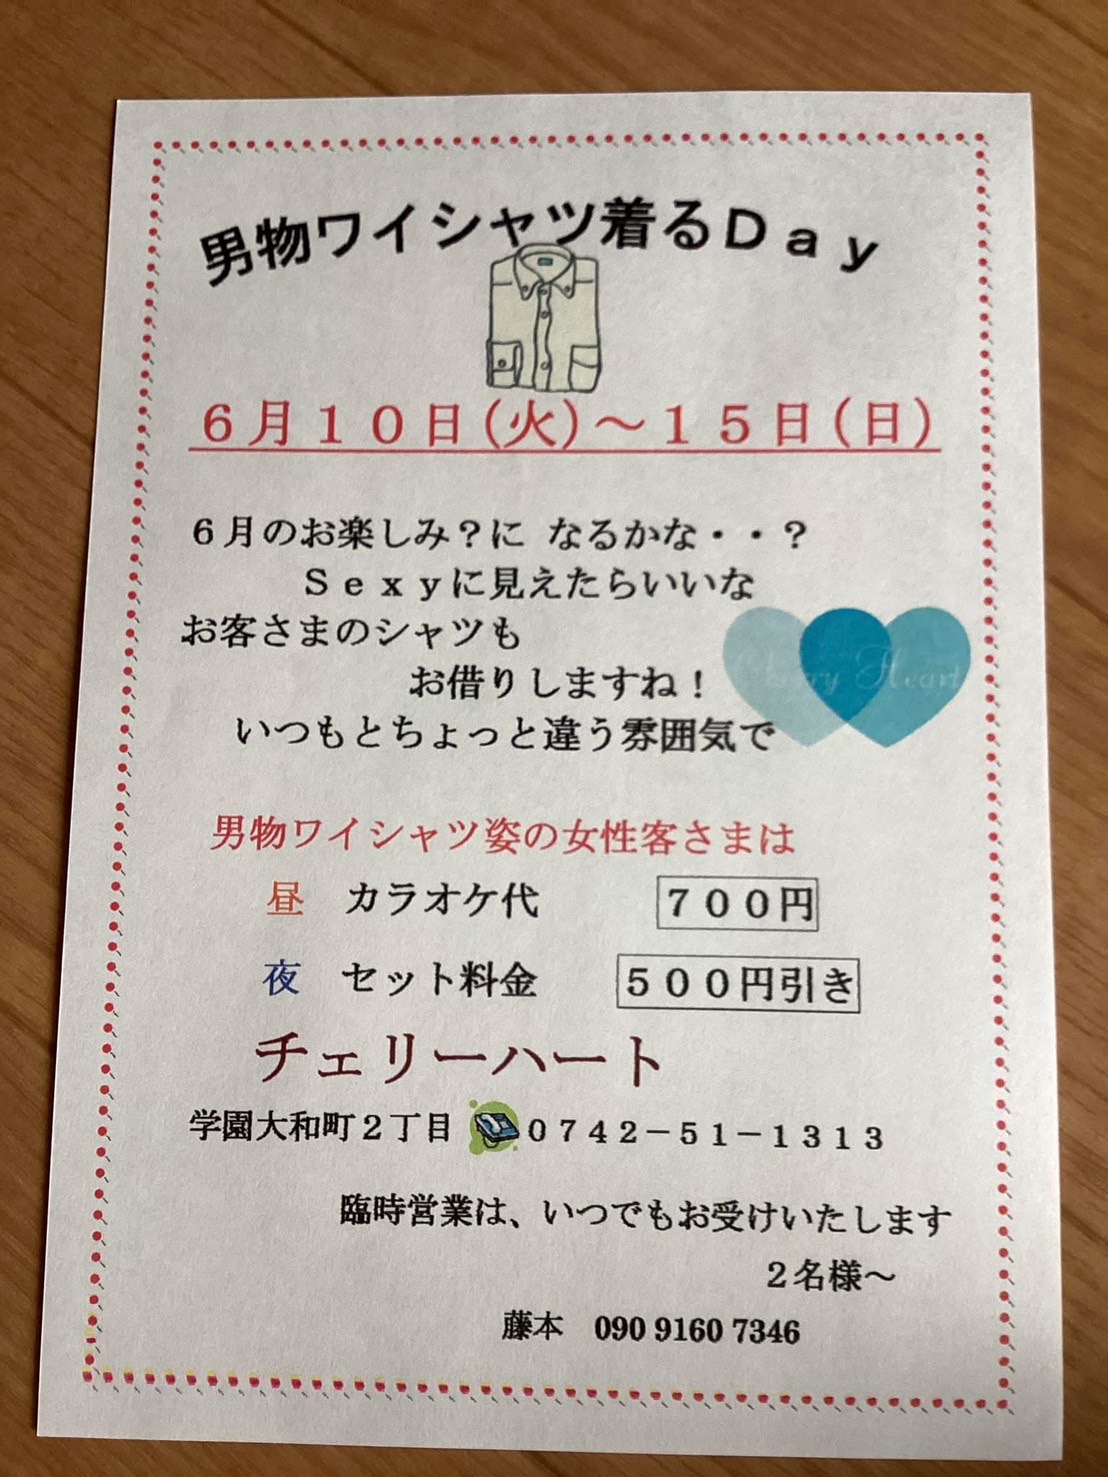 男物ワイシャツ着るＤａｙ
６月１０日（火）～１５日（日）
６月のお楽しみ？に なるかな・・？
Ｓｅｘｙに見えたらいいな
お客さまのシャツも
お借りしますね！
Cherry Heart
いつもとちょっと違う雰囲気で
男物ワイシャツ姿の女性客さまは
昼 カラオケ代 ７００円
夜 セット料金 ５００円引き
チェリーハート
学園大和町２丁目 ０７４２－５１－１３１３
臨時営業は、いつでもお受けいたします
２名様～
藤本 090 9160 7346